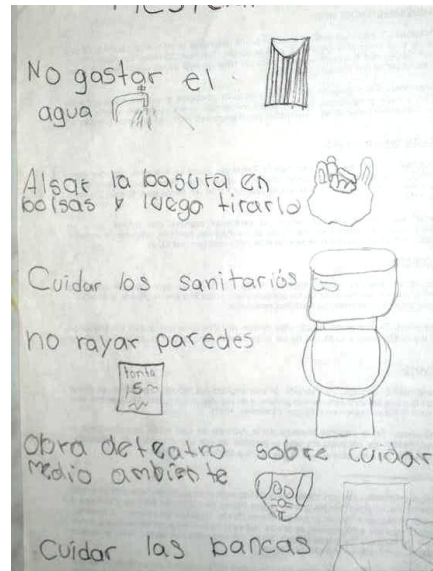 No gastar el
agua
Alsar la basura en
bolsas y luego tirarlo
Cuidar los sanitarios
no rayar paredes
tonta
Obra deteatro sobre cuidar
medio ambiente
Cuidar las bancas